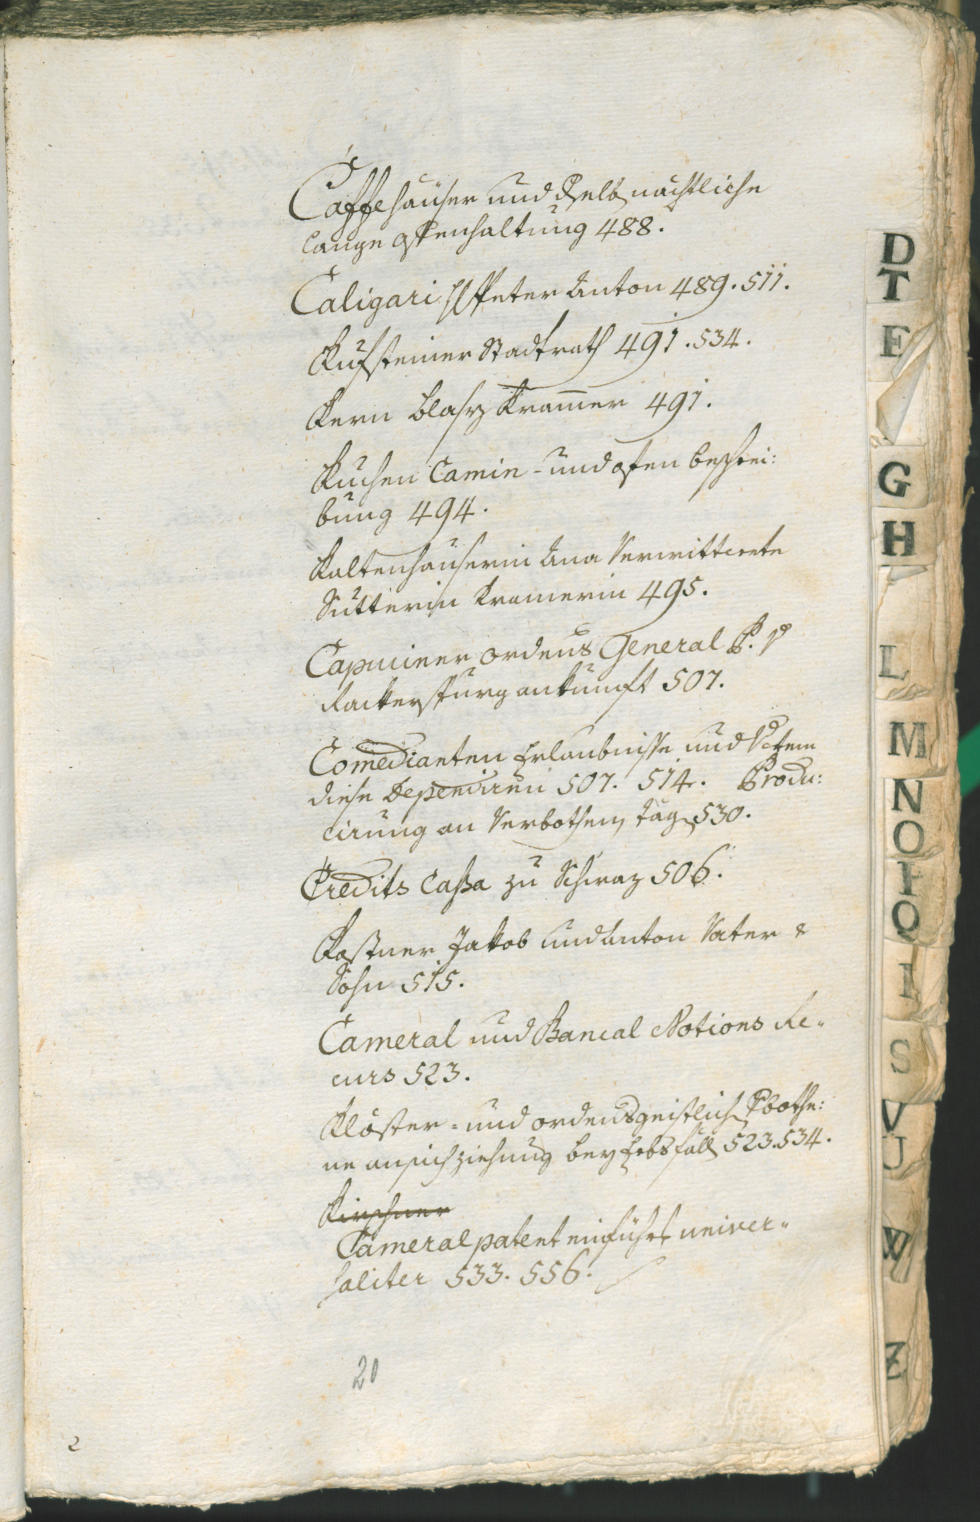 Caffehäuser und dselb nächtliche
lange offenhaltung 488.
Caligari H Peter Anton 489. 511.
Kufsteiner Stadtrath 491. 534.
Kern Blasy Kramer 491.
Kuchen Camin- und ofen beschrei:
bung 494.
Kaltenhauserin Ana Verwittwete
Sutterin Kramerin 495.
Capuciner ordens General P. P
ankunft 507.
Comedianten Erlaubnisse und
diese Dependiren 507. 514. Produ:
cirung an Verbothen täg 530.
Credits Cassa zu Schwaz 506.
Kostner Jakob und Anton Vater &
Sohn 515.
Cameral und Bancal Notions Re-
curs 523.
Klöster- und ordensgeistlich Vbothe:
ne ansichziehung bey Erbsfäll 523. 534.
Kirchner
Cameral patent univer-
saliter 533. 556.
20
2
D
T
E
G
H
L
M
N
O
P
Q
S
V
U
W
Z